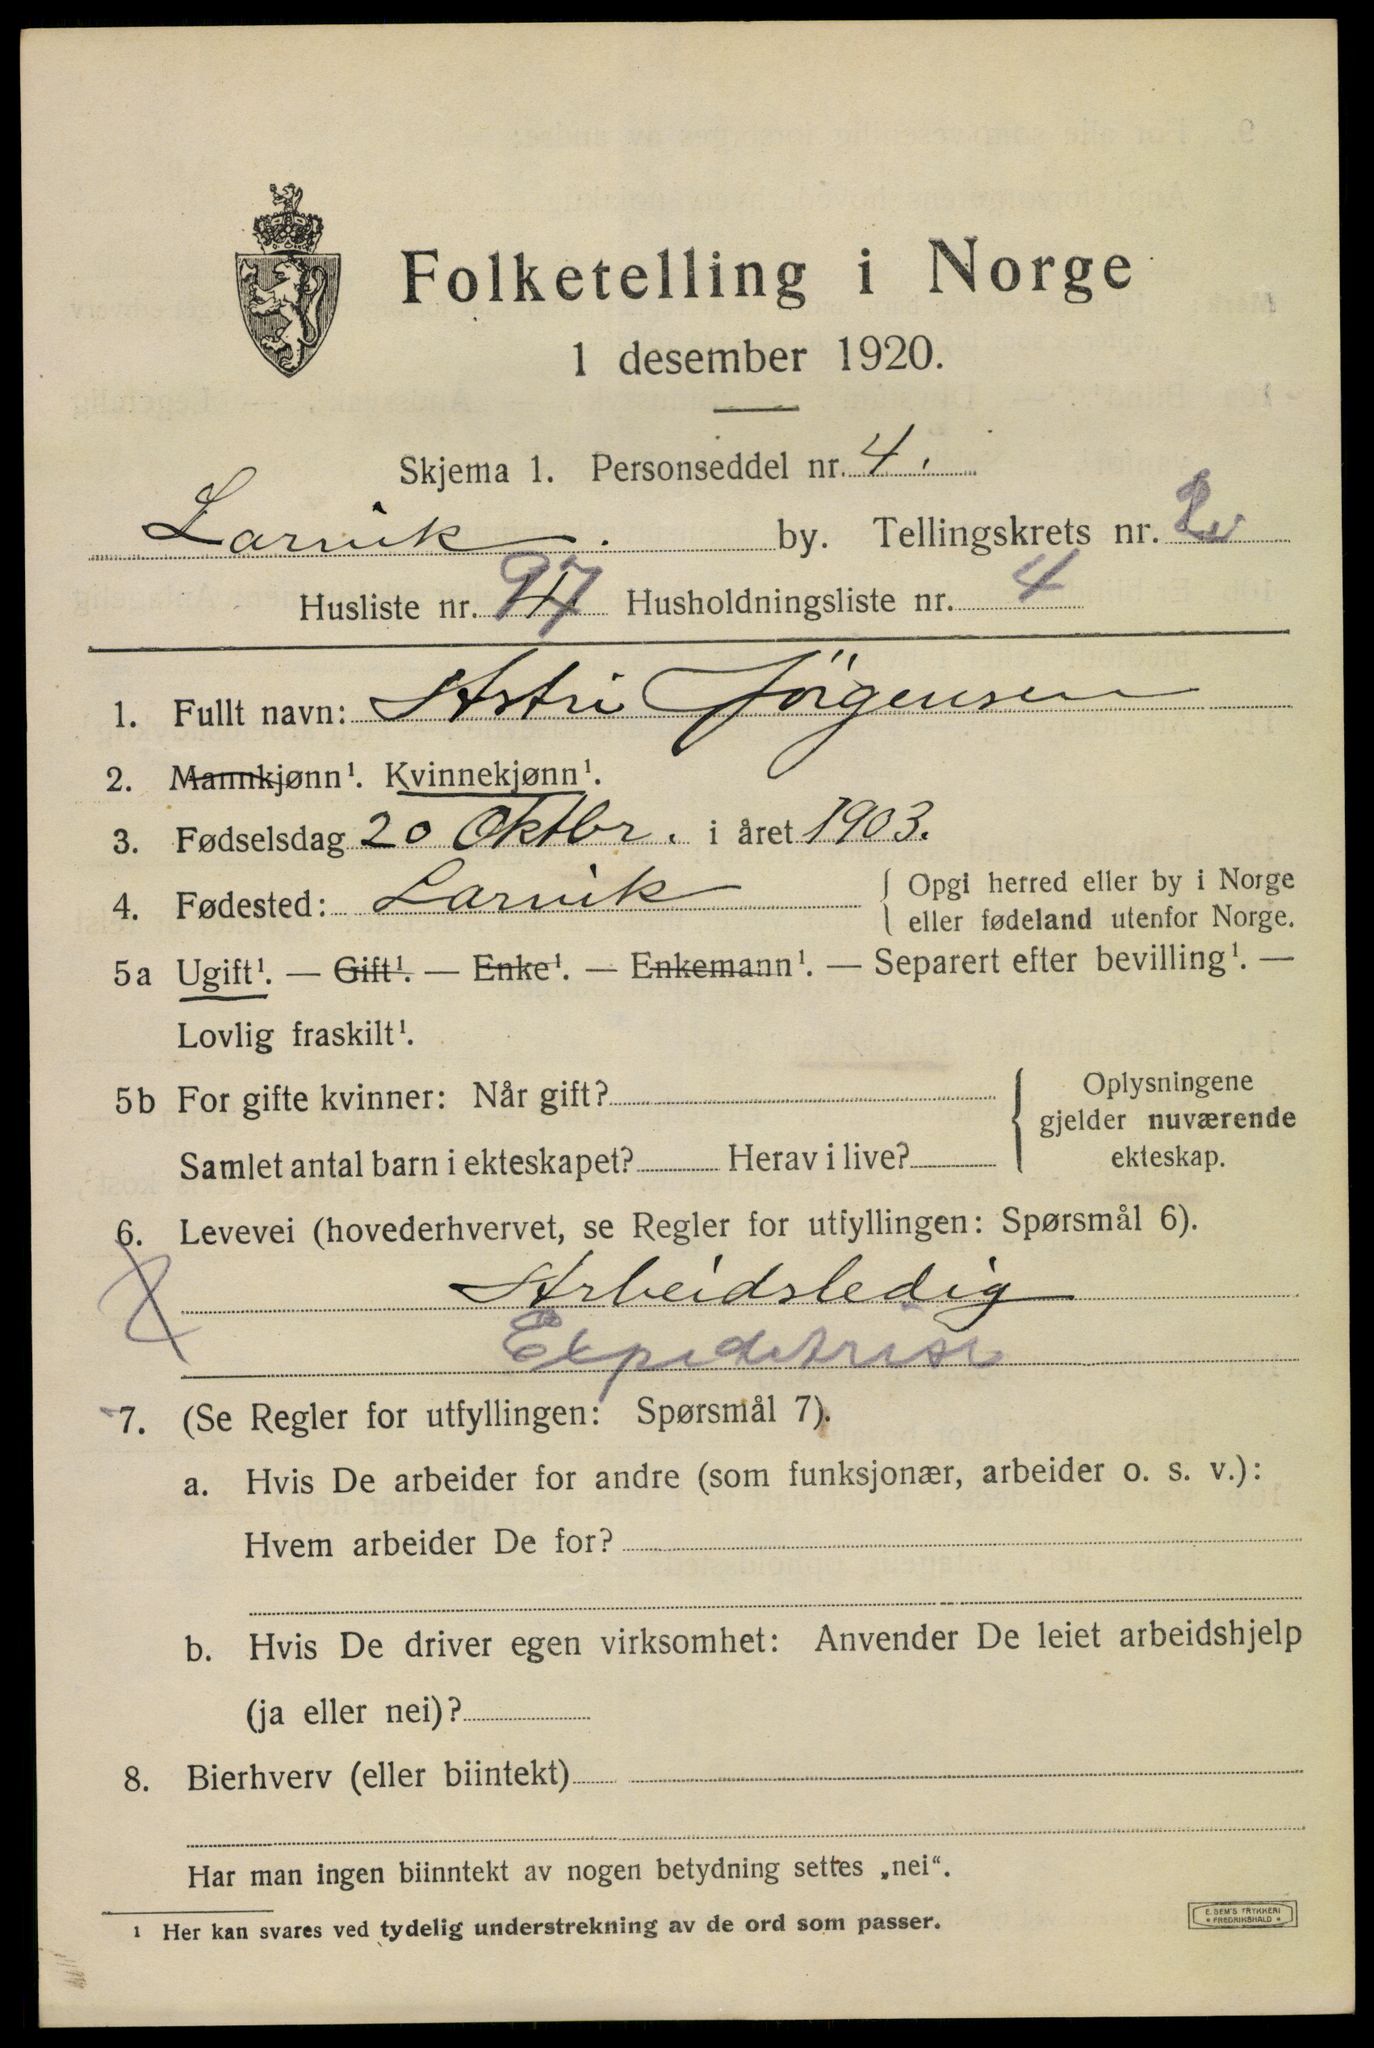 Folketelling i Norge
1 desember 1920.
Skjema 1. Personseddel nr. 4.
Larvik. by. Tellingskrets nr. 2
Husliste nr. 97 Husholdningsliste nr. 4
1. Fullt navn: Astri Jörgensen
2. Mannkjønn¹. Kvinnekjønn¹.
3. Fødselsdag 20 Oktbr. i året 1903.
4. Fødested: Larvik { Opgi herred eller by i Norge
eller fødeland utenfor Norge.
5a Ugift¹. — Gift¹. — Enke¹. — Enkemann¹. — Separert efter bevilling¹. —
Lovlig fraskilt¹.
5b For gifte kvinner: Når gift? { Oplysningene
gjelder nuværende
Samlet antal barn i ekteskapet? Herav i live? ekteskap.
6. Levevei (hovederhvervet, se Regler for utfyllingen: Spørsmål 6).
Arbeidsledig
Expeditrise
7. (Se Regler for utfyllingen: Spørsmål 7).
a. Hvis De arbeider for andre (som funksjonær, arbeider o. s. v.):
Hvem arbeider De for?
b. Hvis De driver egen virksomhet: Anvender De leiet arbeidshjelp
(ja eller nei)?
8. Bierhverv (eller biintekt)
Har man ingen biinntekt av nogen betydning settes „nei".
¹ Her kan svares ved tydelig understrekning av de ord som passer.
E. SEM'S TRYKKERI
FREDRIKSHALD